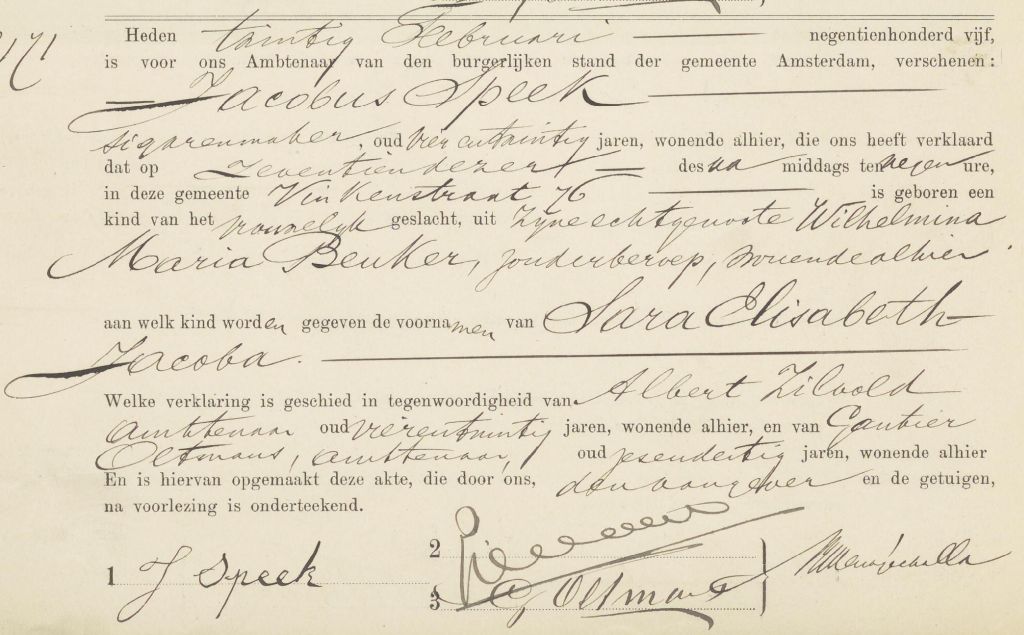 171
Heden twintig Februari negentienhonderd vijf,
is voor ons Ambtenaar van den burgerlijken stand der gemeente Amsterdam, verschenen:
Jacobus Speek
sigarenmaker, oud vier entwintig jaren, wonende alhier, die ons heeft verklaard
dat op zeventien dezer des na middags ten negen ure,
in deze gemeente Vinkenstraat 76 is geboren een
kind van het vrouwelyk geslacht, uit zyne echtgenoote Wilhelmina
Maria Beuker, zonder beroep, wonende alhier
aan welk kind worden gegeven de voornamen van Sara Elisabeth
Jacoba.
Welke verklaring is geschied in tegenwoordigheid van Albert Zilvold
ambtenaar oud vierentwintig jaren, wonende alhier, en van Gautier
Oltmans, ambtenaar, oud zesendertig jaren, wonende alhier
En is hiervan opgemaakt deze akte, die door ons, den aangever en de getuigen,
na voorlezing is onderteekend.
1 J Speek
2
3 G Oltmans